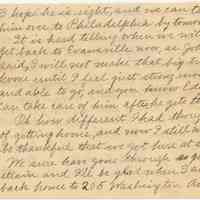 I hope he is right, and we can take
him over to Philadelphia by tomorrow
It is hard telling when we will
get back to Evansville now, as you
said, I will not make that big trip
home until I feel just strong now
and able to go, and you know Ed
can take care of him after he gets th
Oh how different I had thought
of getting home, and now I still a
be thankful that we got here at a
We sure have gone through so
certain and I'll be glad when I a
back home to 205 Washington Av